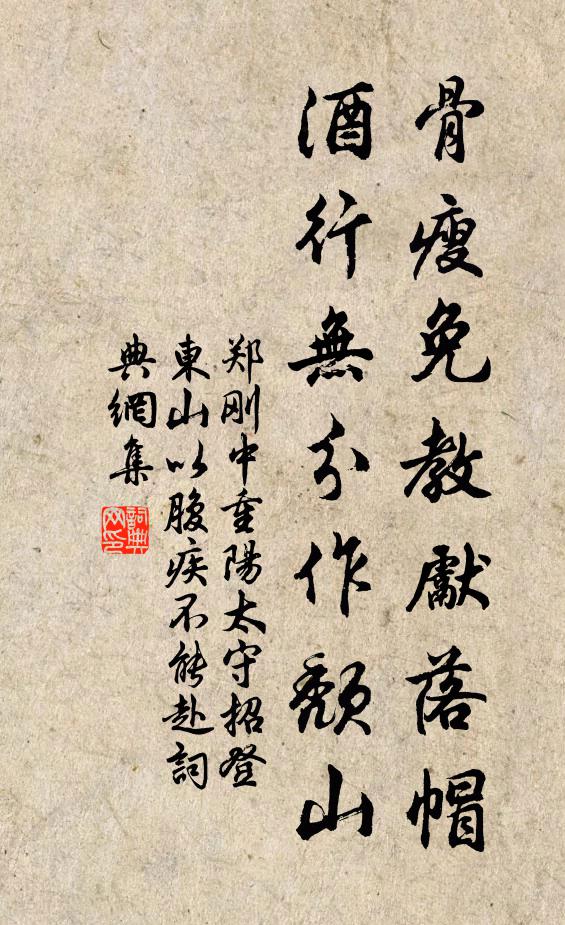 骨瘦免教獻落帽
酒行無分作頹山
郑刚中重陽太守招登
東山以腹疾不能赴詞
典網集
詞典
网印